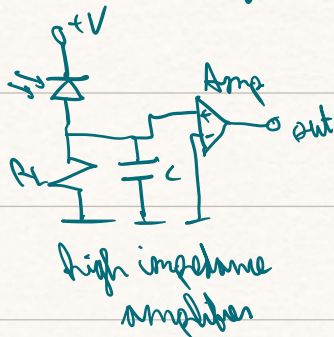 +V
Amp
+
-
out
RL
C
high impedance
amplifier